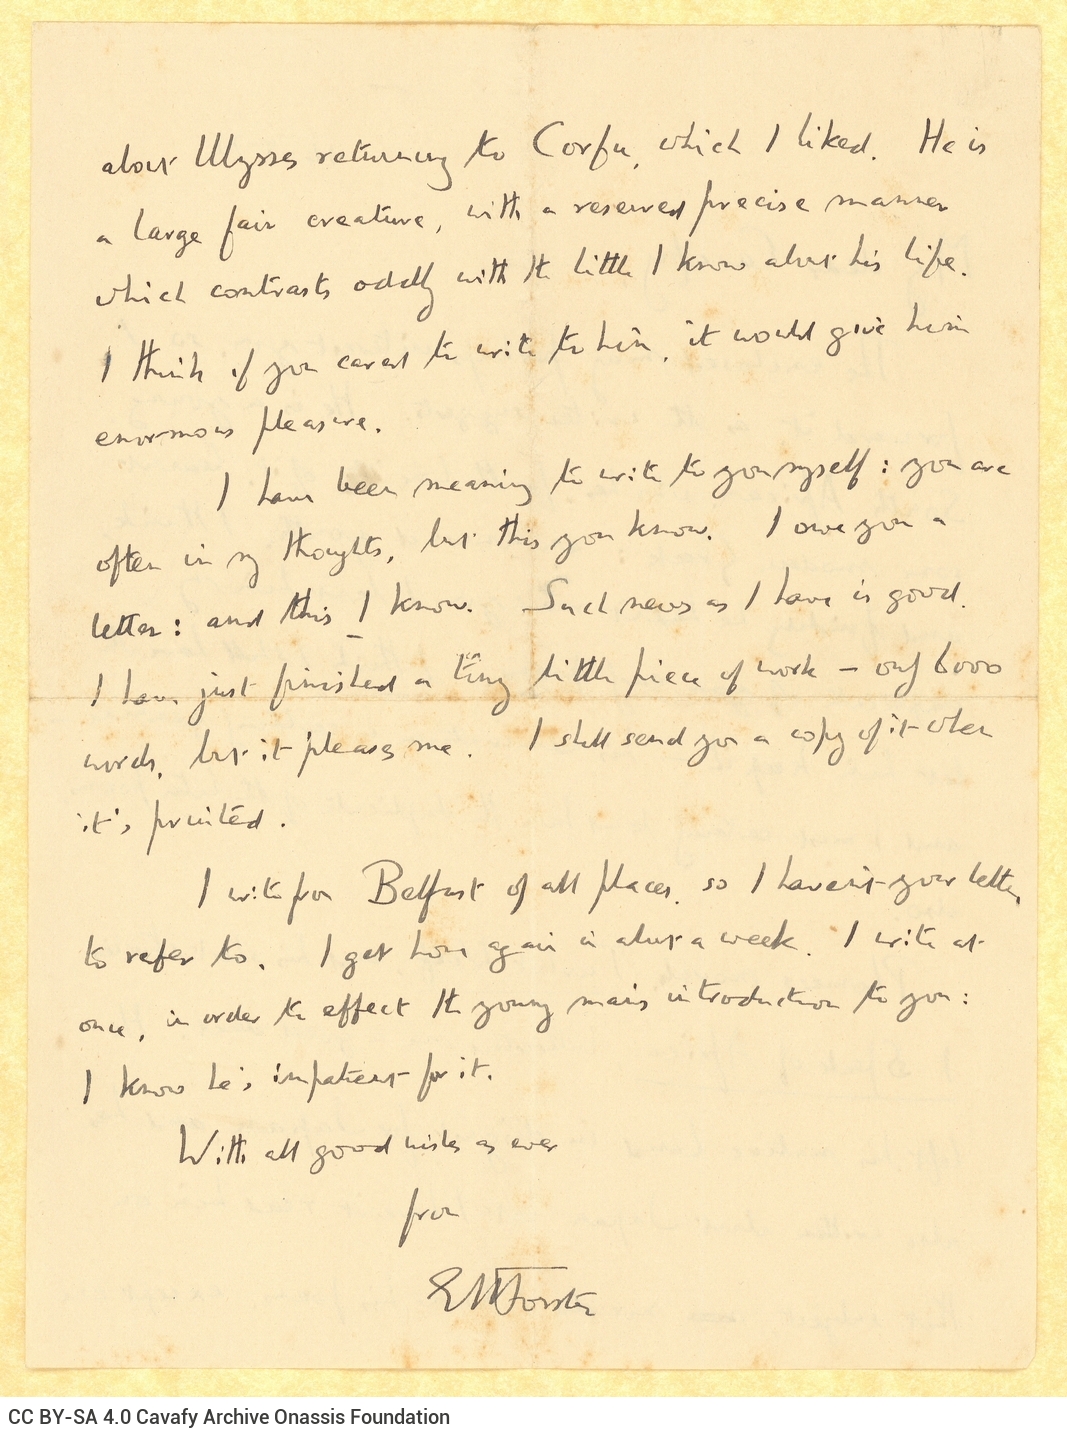 about Ulysses returning to Corfu, which I liked. He is
a large fair creature, with a reserved precise manner
which contrasts oddly with the little I know about his life.
I think if you cared to write to him, it would give him
enormous pleasure.
I have been meaning to write to you myself: you are
often in my thoughts, but this you know. I owe you a
letter: and this I know. Such news as I have is good.
I have just finished a tiny little piece of work – only 6000
words, but it pleases me. I shall send you a copy of it when
it's printed.
I write from Belfast of all places, so I haven't your letter
to refer to. I get home again in about a week. I write at
once, in order to effect the young man's introduction to you:
I know he's impatient for it.
With all good wishes as ever
from
EMForster
CC BY-SA 4.0 Cavafy Archive Onassis Foundation